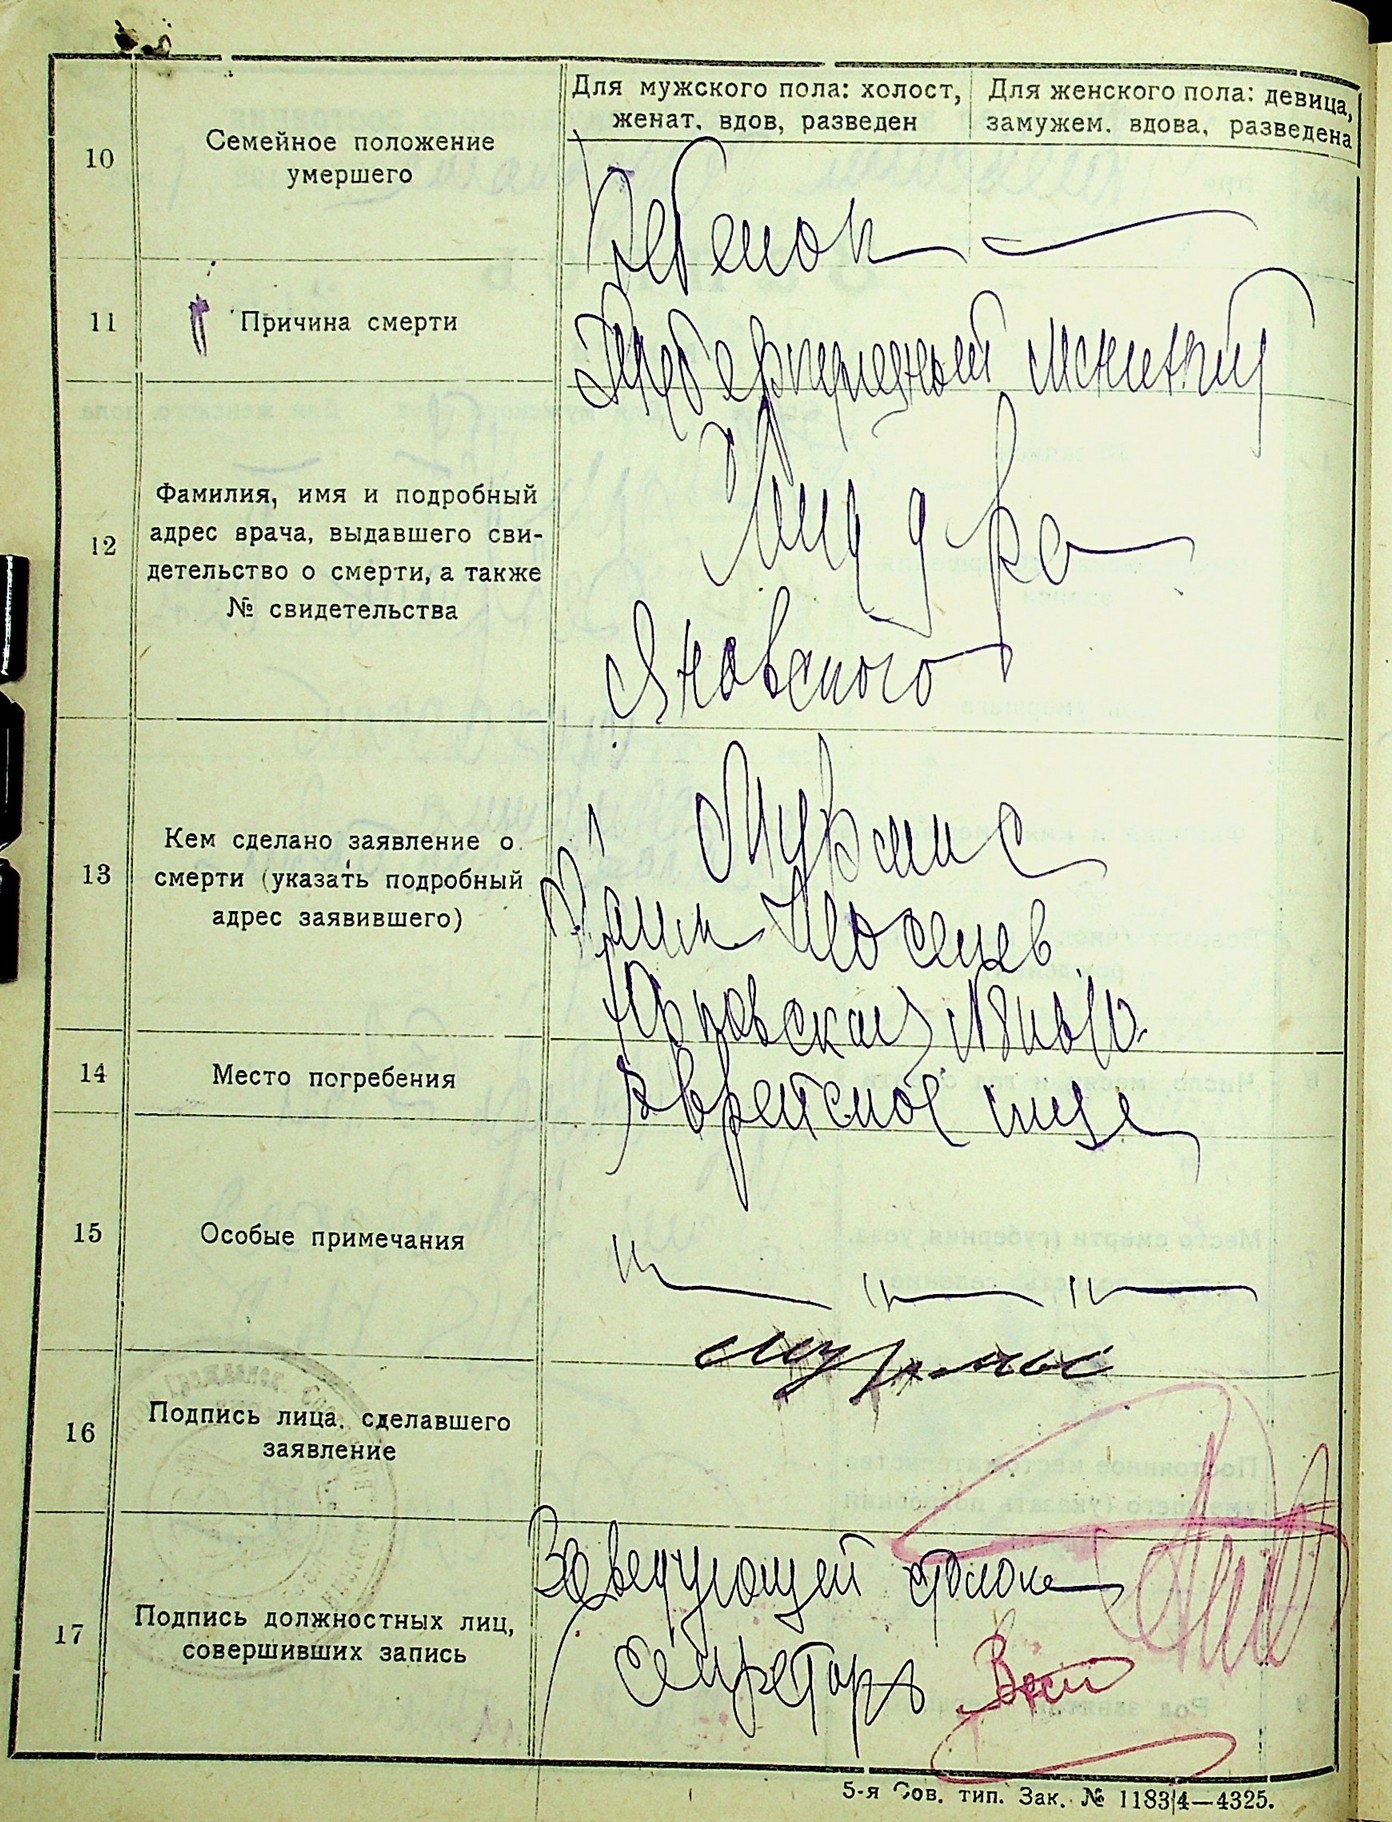 Для мужского пола: холост,
женат, вдов, разведен
Для женского пола: девица,
замужем, вдова, разведена
10
Семейное положение
умершего
Ребенок —
11
Причина смерти
Туберкулезный менингит
12
Фамилия, имя и подробный
адрес врача, выдавшего сви-
детельство о смерти, а также
№ свидетельства
д-ра
Яновского
13
Кем сделано заявление о
смерти (указать подробный
адрес заявившего)
Мурмис
Хаим
Юрковская
14
Место погребения
Еврейское
15
Особые примечания
16
Подпись лица, сделавшего
заявление
Мурмис
17
Подпись должностных лиц,
совершивших запись
Заведующий столом
Секретарь
5-я Сов. тип. Зак. № 1183/4—4325.